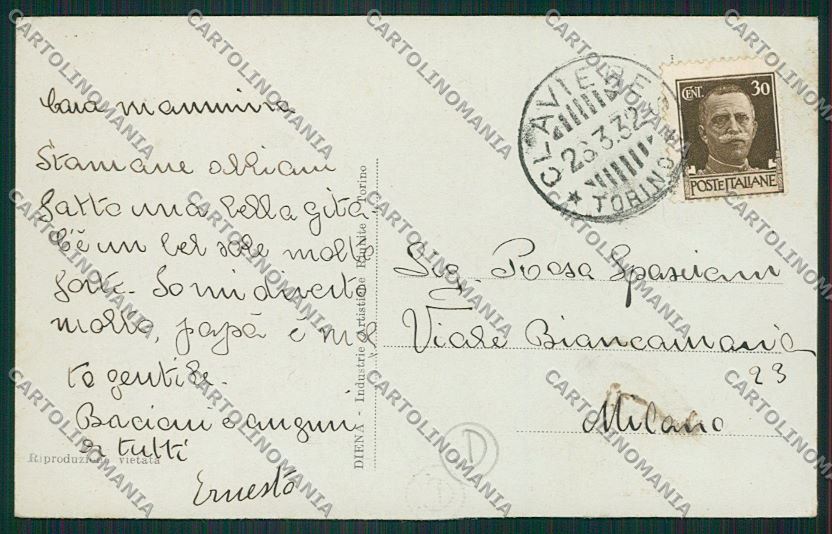 Cara mammina
Stamane abbiam
fatto una bella gita
C'è un bel sole molto
forte. Io mi diverto
molto, papà è mol
to gentile.
Bacioni e auguri
a tutti
Ernesto
Riproduzione vietata
DIENA - Industrie Artistiche Riunite - Torino
CLAVIERE
26.3.32
TORINO
CENT. 30
POSTE ITALIANE
Sig. Rosa
Viale Biancamaria
23
Milano
D
CARTOLINOMANIA